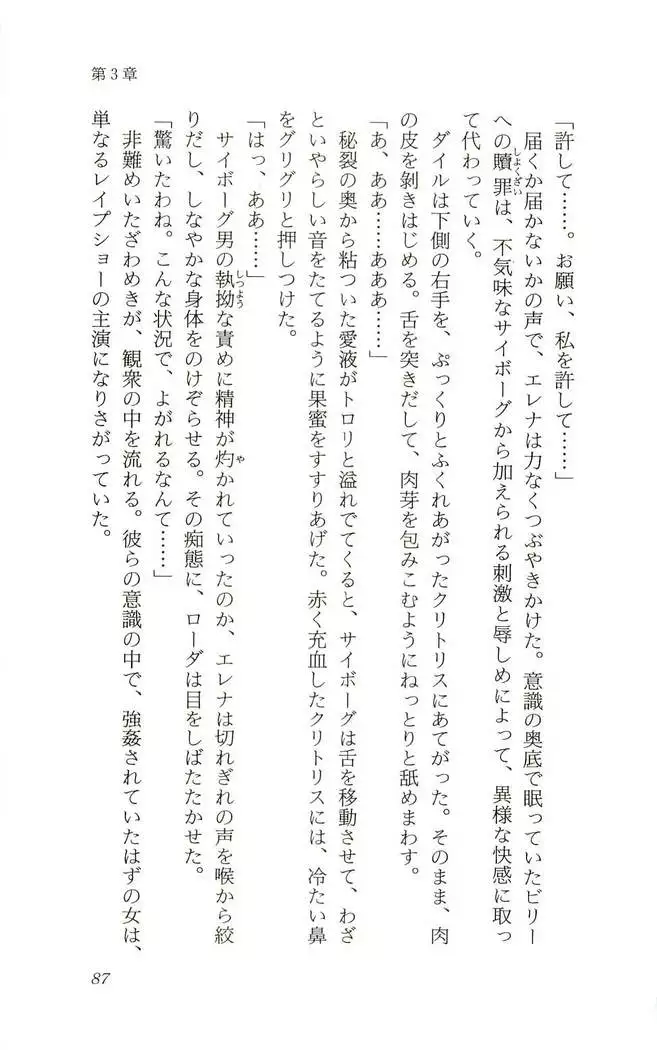 第３章
「許して……。お願い、私を許して……」
届くか届かないかの声で、エレナは力なくつぶやきかけた。意識の奥底で眠っていたビリー
への贖罪は、不気味なサイボーグから加えられる刺激と辱しめによって、異様な快感に取っ
しょくざい
て代わっていく。
ダイルは下側の右手を、ぷっくりとふくれあがったクリトリスにあてがった。そのまま、肉
の皮を剝きはじめる。舌を突きだして、肉芽を包みこむようにねっとりと舐めまわす。
「あ、ああ……あああ……」
秘裂の奥から粘ついた愛液がトロリと溢れでてくると、サイボーグは舌を移動させて、わざ
といやらしい音をたてるように果蜜をすすりあげた。赤く充血したクリトリスには、冷たい鼻
をグリグリと押しつけた。
「はっ、ああ……」
サイボーグ男の執拗な責めに精神が灼かれていったのか、エレナは切れぎれの声を喉から絞
しつよう
や
りだし、しなやかな身体をのけぞらせる。その痴態に、ローダは目をしばたたかせた。
「驚いたわね。こんな状況で、よがれるなんて……」
非難めいたざわめきが、観衆の中を流れる。彼らの意識の中で、強姦されていたはずの女は、
単なるレイプショーの主演になりさがっていた。
87